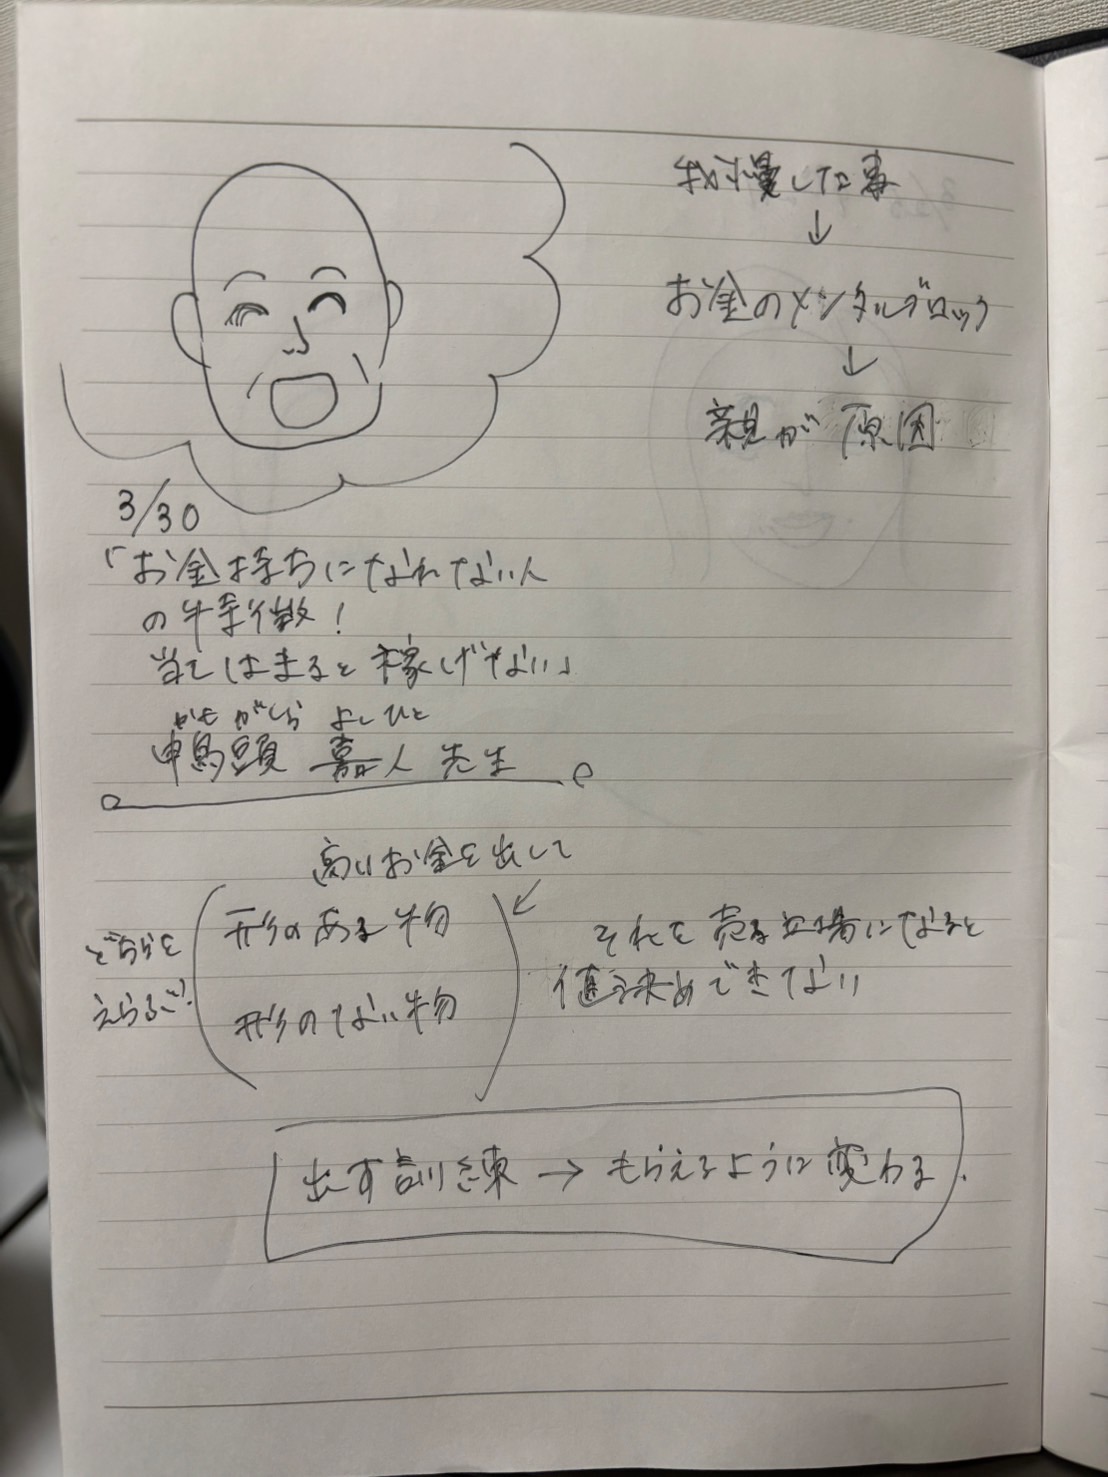 我慢した事
↓
お金のメンタルブロック
↓
親が原因
3/30
「お金持ちになれない人
の特徴!
当てはまると稼げない」
かもがしら よしひと
鴨頭 嘉人 先生
高いお金を出して
形のある物
どちらを
えらぶか?
形のない物
それを売る立場になると
値決めできない
出す訓練→もらえるように変わる.